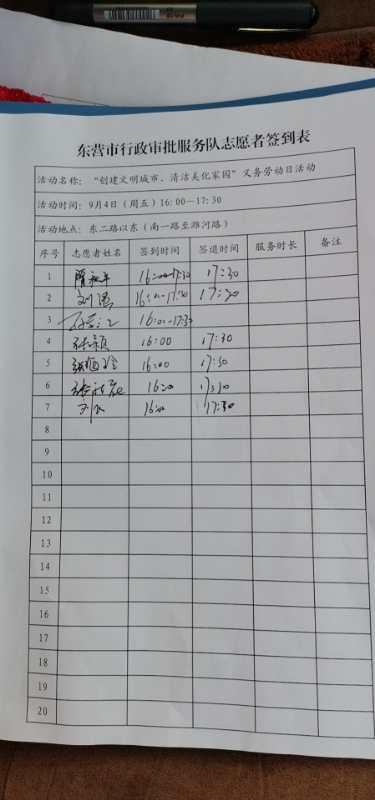 东营市行政审批服务队志愿者签到表
活动名称：“创建文明城市、清洁美化家园”义务劳动日活动
活动时间：9月4日（周五）16:00-17:30
活动地点：东二路以东（南一路至潍河路）
序号 志愿者姓名 签到时间 签退时间 服务时长 备注
1 16:00-17:30 17:30
2 刘 16:00-17:30 17:30
3 16:00-17:30
4 张颖 16:00 17:30
5 16:00 17:30
6 张 16:00 17:30
7 16:00 17:30
8
9
10
11
12
13
14
15
16
17
18
19
20